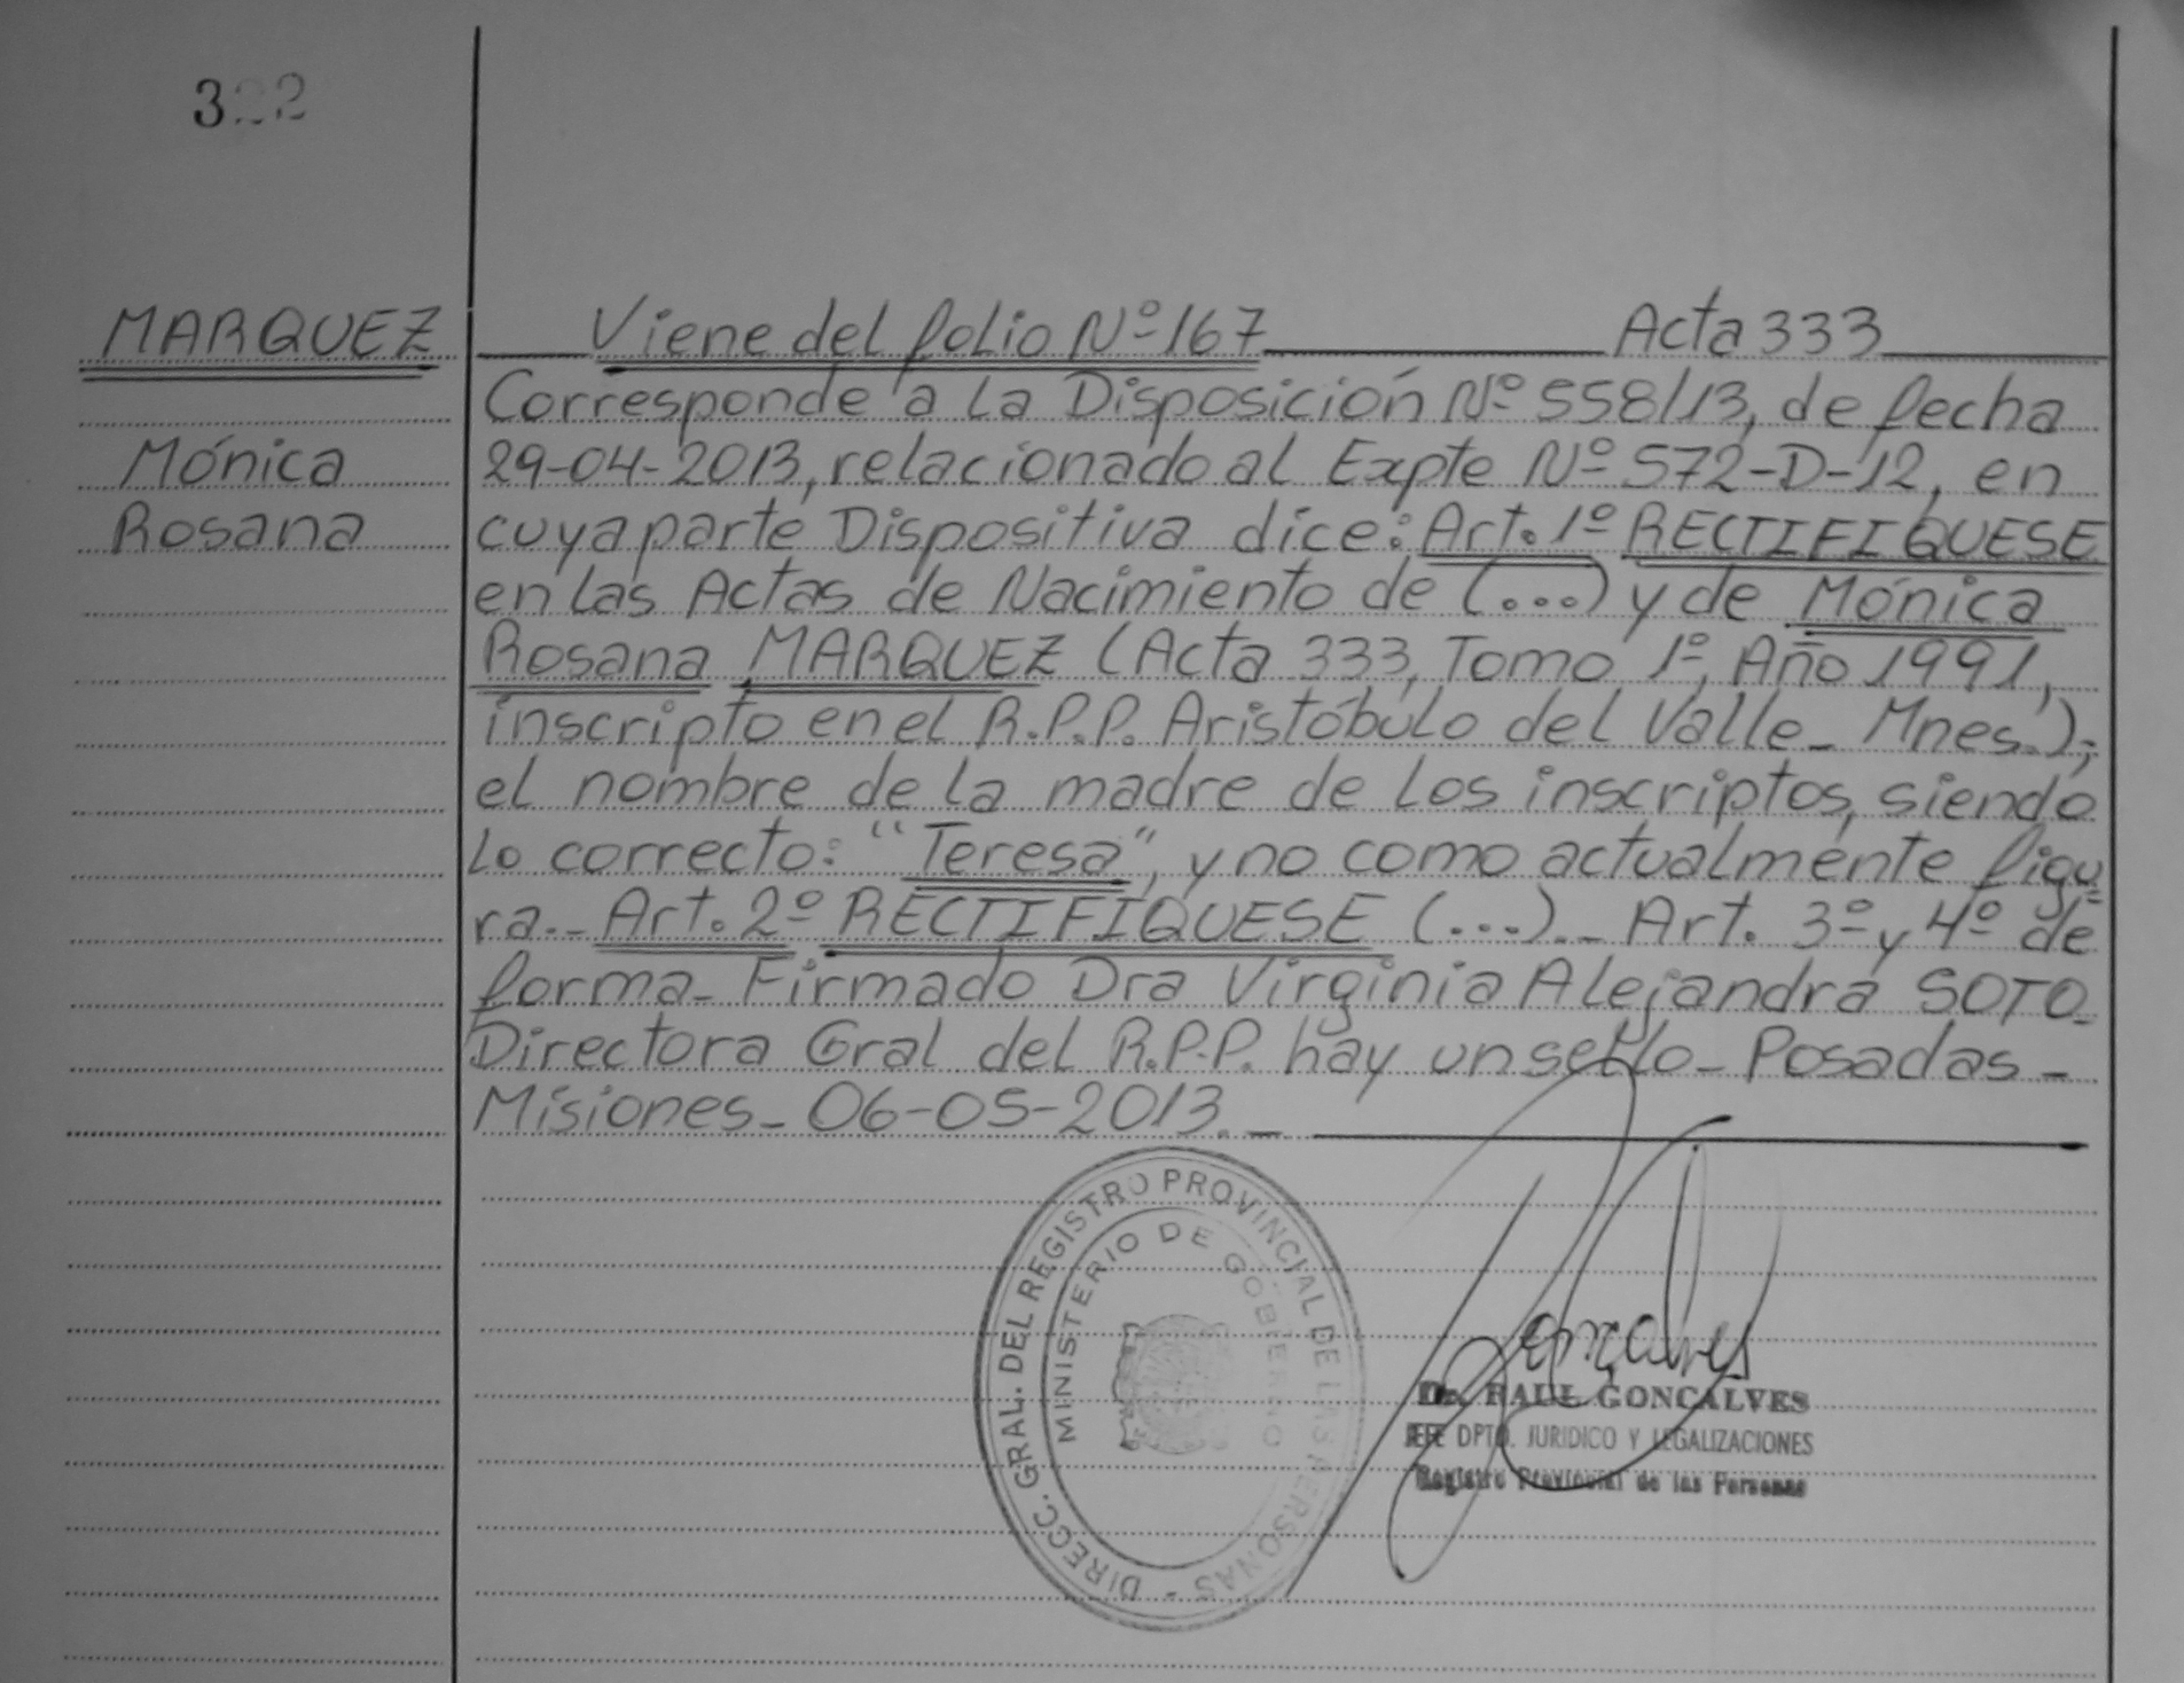 322
MARQUEZ
Mónica
Rosana
Viene del folio Nº 167 Acta 333
Corresponde a la Disposición Nº 558/13, de fecha
29-04-2013, relacionado al Expte Nº 572-D-12, en
cuya parte Dispositiva dice: Art. 1º RECTIFIQUESE
en las Actas de Nacimiento de (...) y de Mónica
Rosana MARQUEZ (Acta 333, Tomo 1º, Año 1991,
inscripto en el R.P.P. Aristóbulo del Valle_ Mnes.);
el nombre de la madre de los inscriptos, siendo
lo correcto: "Teresa", y no como actualmente figu
ra._ Art. 2º RECTIFIQUESE (...)._ Art. 3º y 4º de
forma_ Firmado Dra Virginia Alejandra SOTO_
Directora Gral del R.P.P. hay un sello_ Posadas_
Misiones_ 06-05-2013._
DIRECC. GRAL. DEL REGISTRO PROVINCIAL DE LAS PERSONAS -
MINISTERIO DE GOBIERNO
Gonçalves
Dr. RAUL GONCALVES
JEFE DPTO. JURIDICO Y LEGALIZACIONES
Registro Provincial de las Personas